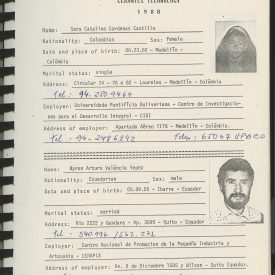 CERAMICS TECHNOLOGY
1 9 8 8
Name: Sara Catalina Cardenas Castillo
Nationality: Colombian Sex: female
Date and place of birth: 06.23.60 - Medellín -
Colômbia
Marital status: single
Address: Circular 74 - 76 B 82 - Laureles - Medellín - Colômbia
Tel: 94.250.9464
Employer: Universidade Pontificia Bolivariana - Centro de Investigacio-
nes para el Desarrollo Integral - CIDI
Address of employer: Apartado Aéreo 1178 - Medellín - Colômbia
Tel: 94-2496892 Telex: 65047 UPBCO
Name: Byron Arturo Valência Yepez
Nationality: Ecuadorian Sex: male
Date and place of birth: 05.09.55 - Ibarra - Ecuador
Marital status: married
Address: Rio 2222 y Gandara - Ap. 3689 - Quito - Ecuador
Tel: 540.996 / 562.271
Employer: Centro Nacional de Promocion de la Pequeña Industria y
Artesania - CENAPIA
Address of employer: Av. 6 de Diciembre 1585 y Wilson - Quito - Ecuador.